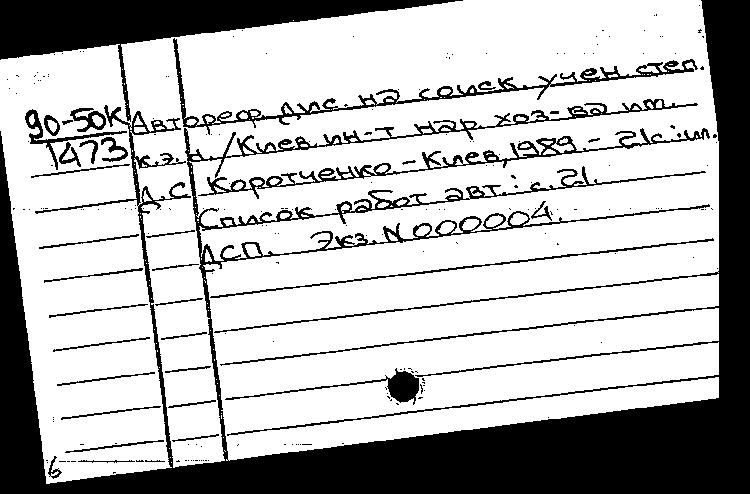 90-50К Автореф. дис. на соиск. учен. степ.
1473 к.э.н. / Киев. ин-т нар. хоз-ва им.
Д.С. Коротченко. - Киев, 1989. - 21с.: ил.
Список работ авт.: с. 21.
ДСП. Экз. N 000004.
6